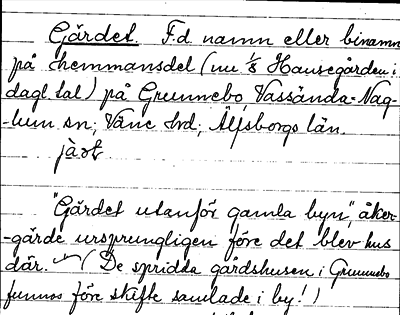 Gärdet. F.d. namn eller binamn
på hemmansdel (nu 1/8 Hansegården i
dagl. tal) på Grunnebo, Vassända-Nag-
-lum sn; Väne hd; Älfsborgs län.
jàṙt
"Gärdet utanför gamla byn", åker-
-gärde ursprungligen före det blev hus
där. (De spridda gårdshusen i Grunnebo
funnos före skifte samlade i by!)